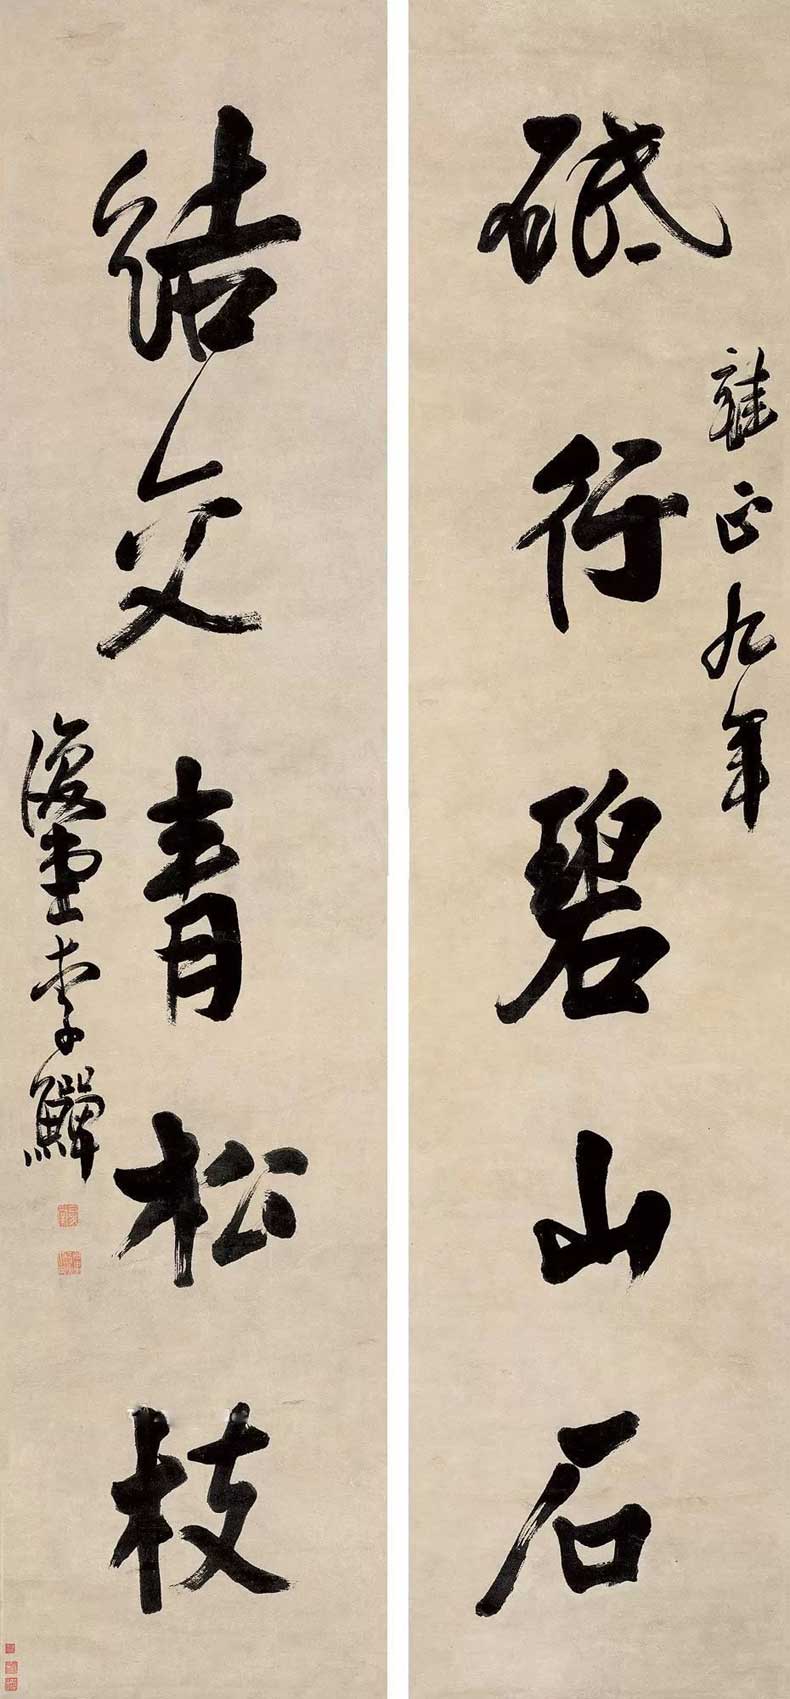 雍正九年
砥行碧山石
結交青松枝
復堂李鱓